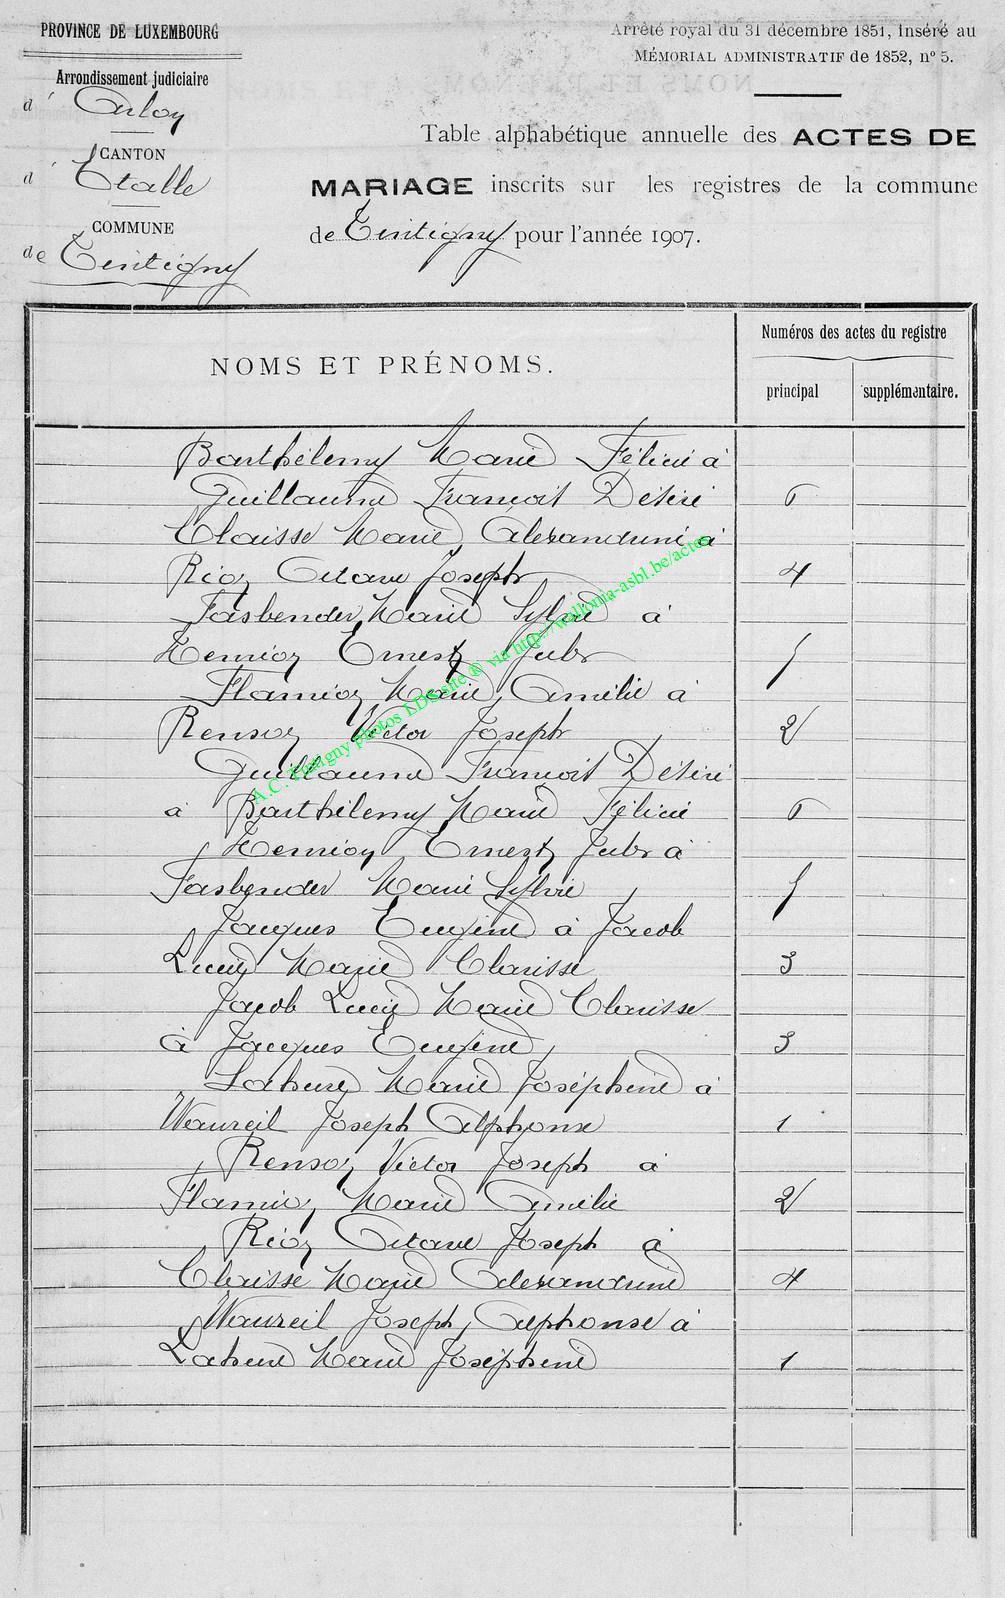 PROVINCE DE LUXEMBOURG
Arrondissement judiciaire
d' Arlon
CANTON
d' Etalle
COMMUNE
de Tintigny
Arrêté royal du 31 décembre 1851, inséré au
MÉMORIAL ADMINISTRATIF de 1852, n° 5.
Table alphabétique annuelle des ACTES DE
MARIAGE inscrits sur les registres de la commune
de Tintigny pour l'année 1907.
NOMS ET PRÉNOMS.
Numéros des actes du registre
principal
supplémentaire.
Barthélemy Marie Félicie à
Guillaume François Désiré 6
Claisse Marie Alexandrine à
Rion Octave Joseph 4
Fasbender Marie Sylvie à
Hennion Ernest Jules 5
Flamion Marie Amélie à
Renson Victor Joseph 2
Guillaume François Désiré
à Barthélemy Marie Félicie 6
Hennion Ernest Jules à
Fasbender Marie Sylvie 5
Jacques Eugène à Jacob
Lucie Marie Clarisse 3
Jacob Lucie Marie Clarisse
à Jacques Eugène 3
Lahure Marie Joséphine à
Wavreil Joseph Alphonse 1
Renson Victor Joseph à
Flamion Marie Amélie 2
Rion Octave Joseph à
Claisse Marie Alexandrine 4
Wavreil Joseph Alphonse à
Lahure Marie Joséphine 1
A.C. Tintigny photos LDS site © via http://wallonia-asbl.be/actes